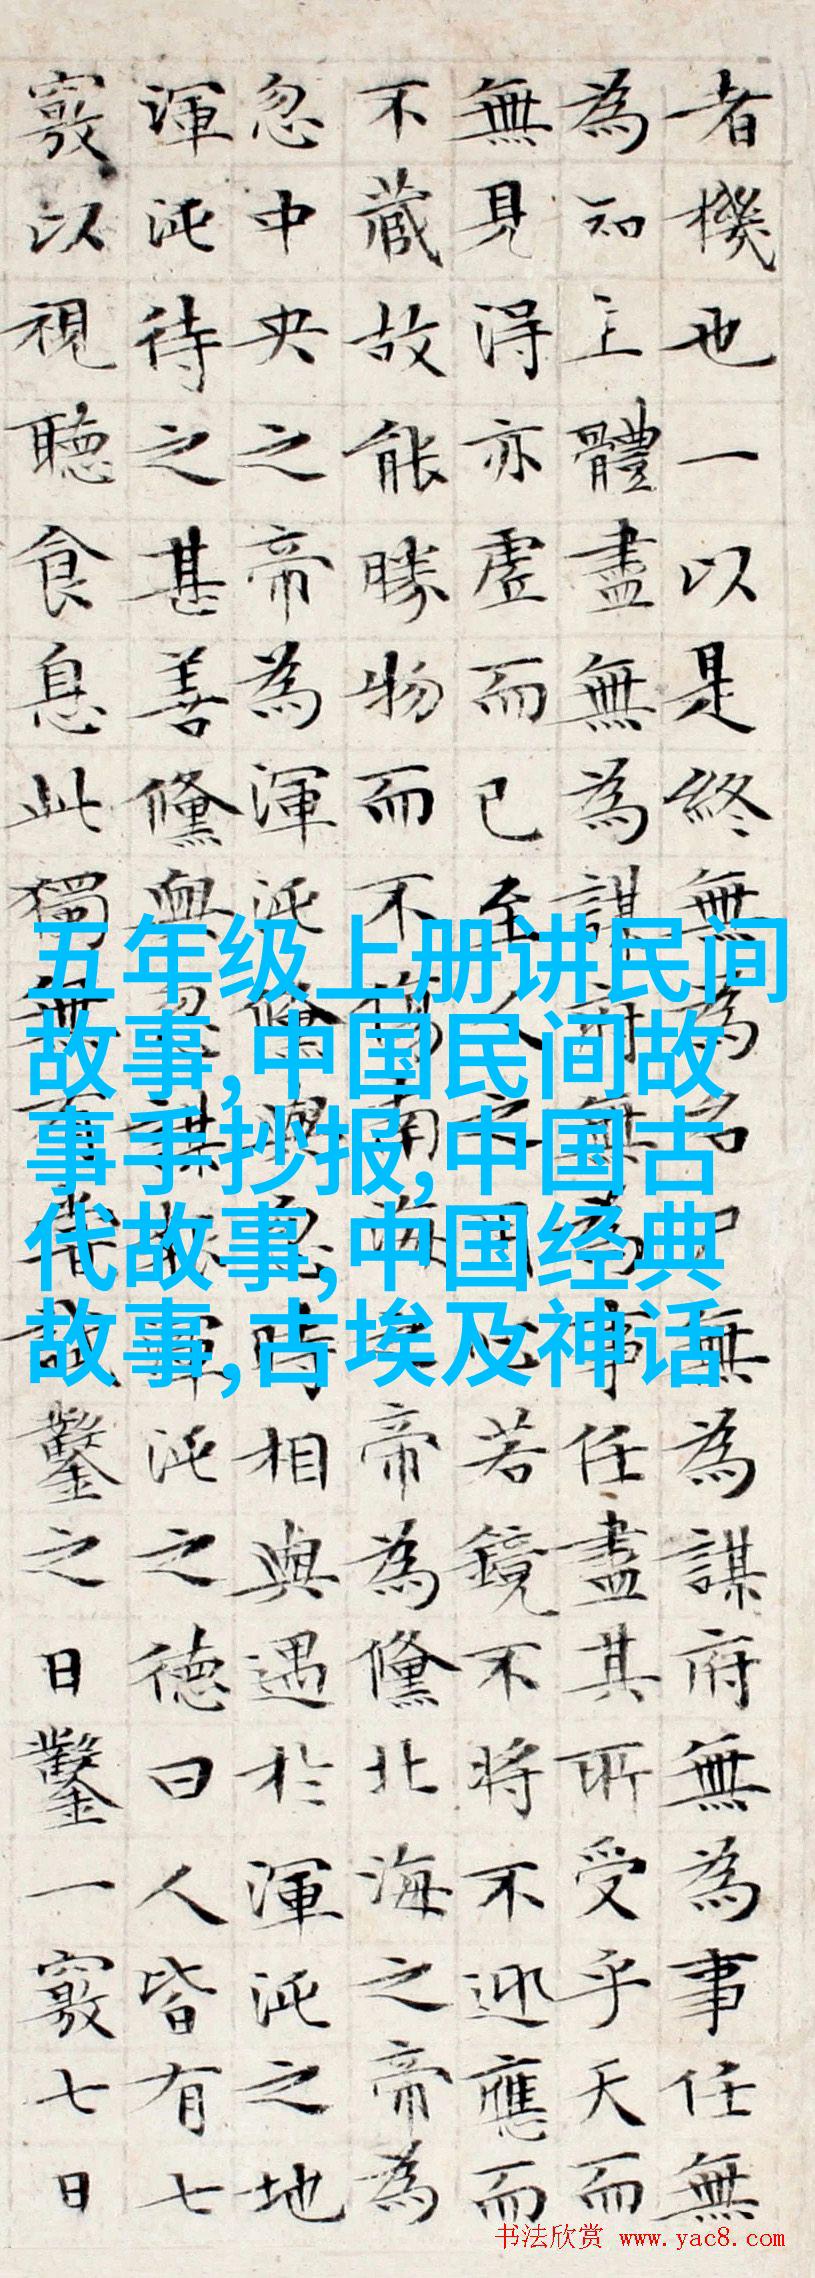 者機也一以是終無為名尸無為謀府無為事任無
為知主體盡無為謀府無為事任盡其所受乎天而
無見得亦虛而已至人之用心若鏡不將不迎應而
不藏故能勝物而不傷南海之帝為儵北海之帝為
忽中央之帝為渾沌儵與忽時相與遇於渾沌之地
渾沌待之甚善儵與忽謀報渾沌之德曰人皆有七
竅以視聽食息此獨無有嘗試鑿之日鑿一竅七日
五年级上册讲民间
故事,中国民间故
事手抄报,中国古
代故事,中国经典
故事,古埃及神话
书法欣赏 www.yac8.com